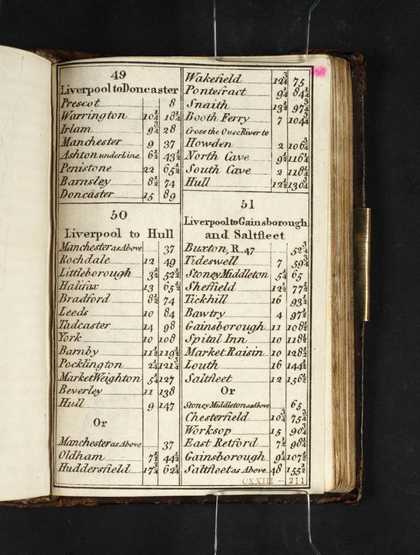 49
Liverpool to Doncaster
Prescot 8
Warrington 10¼ 18¼
Irlam 9¾ 28
Manchester 9 37
Ashton underline 6½ 43½
Penistone 22 65½
Barnsley 8½ 74
Doncaster 15 89
50
Liverpool to Hull
Manchester as above 37
Rochdale 12 49
Littleborough 3½ 52½
Halifax 13 65½
Bradford 8½ 74
Leeds 10 84
Tadcaster 14 98
York 10 108
Barnby 11½ 119½
Pocklington 2¼ 121¾
Market Weighton 5¼ 127
Beverley 11 138
Hull 9 147
Or
Manchester as above 37
Oldham 7½ 44½
Huddersfield 17¾ 62¼
Wakefield 12¾ 75
Pontefract 9¼ 84¼
Snaith 13¼ 97½
Booth Ferry 7 104½
Cross the Ouse River to
Howden 2 106½
North Cave 9¾ 116¼
South Cave 2 118¼
Hull 12½ 130¾
51
Liverpool to Gainsborough
and Saltfleet
Buxton, R. 47 52¾
Tideswell 7 59¾
Stoney Middleton 5¼ 65
Sheffield 12½ 77½
Tickhill 16 93½
Bawtry 4 97½
Gainsborough 11 108½
Spital Inn 10 118½
Market Raisin 10 128½
Louth 16 144½
Saltfleet 12 156½
Or
Stoney Middleton as above 65
Chesterfield 10¾ 75¾
Worksop 15 90¾
East Retford 7½ 98¼
Gainsborough 9¼ 107½
Saltfleet as above 48 155½
CXXIII - 211